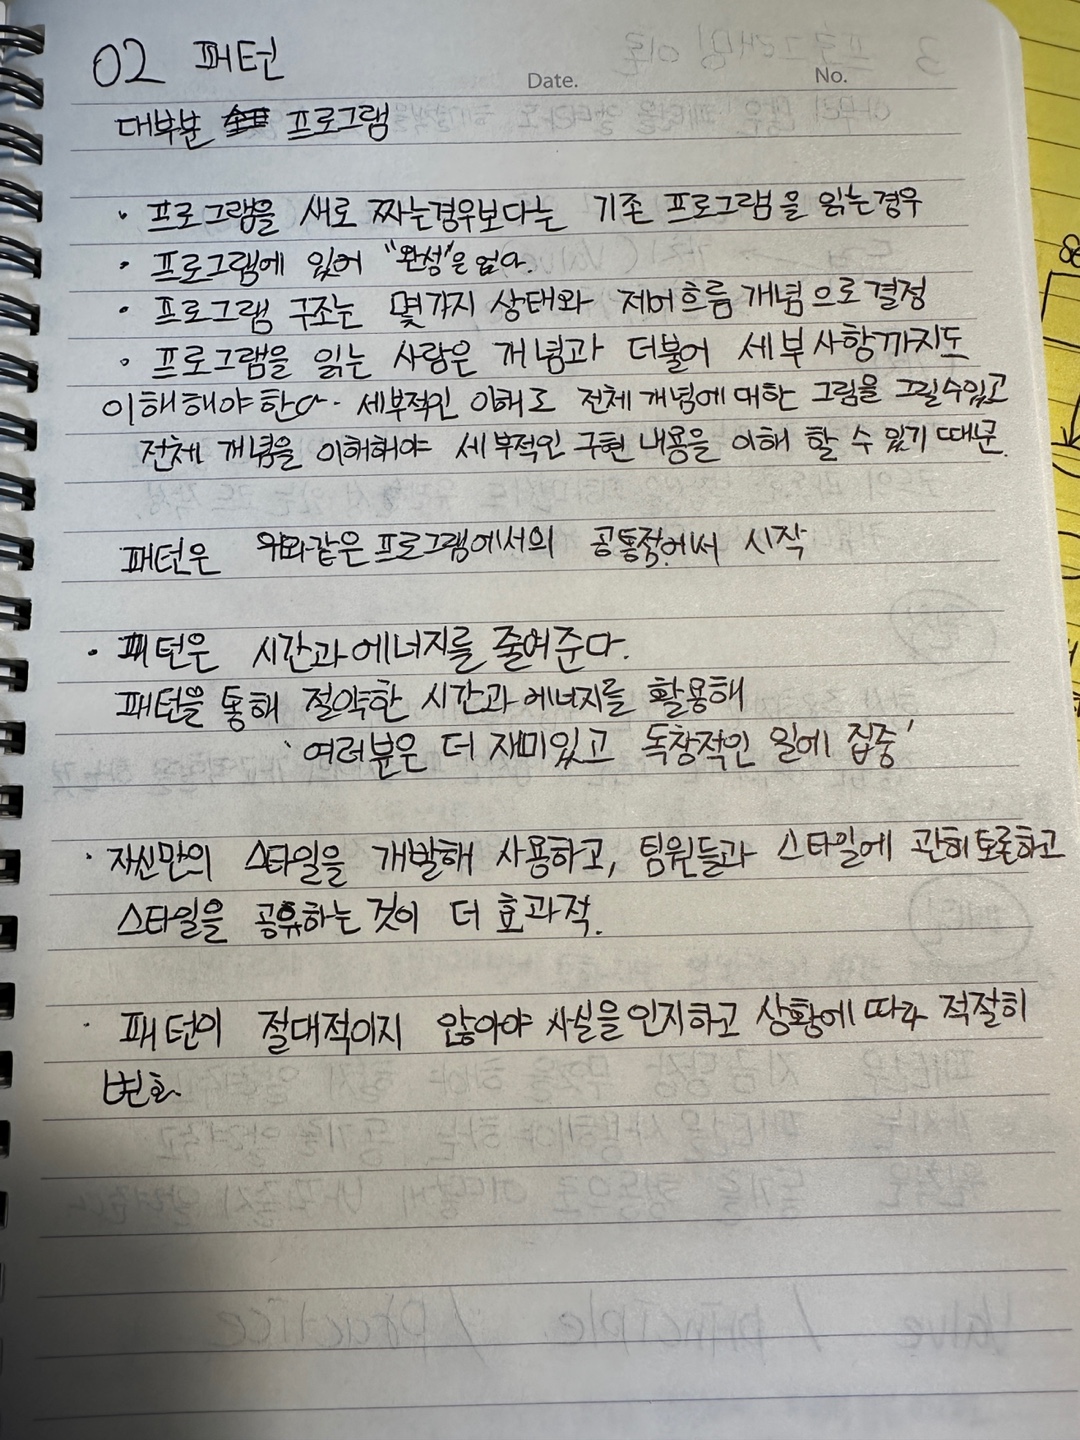 02 패턴
Date. No.
대부분 프로그램
· 프로그램을 새로 짜는경우보다는 기존 프로그램을 읽는경우
· 프로그램에 있어 "완성"은 없다.
· 프로그램 구조는 몇가지 상태와 제어흐름 개념으로 결정
· 프로그램을 읽는 사람은 개념과 더불어 세부사항까지도
이해해야한다. 세부적인 이해도 전체 개념에 대한 그림을 그릴수있고
전체 개념을 이해해야 세부적인 구현 내용을 이해 할 수 있기 때문.
패턴은 위와같은 프로그램에서의 공통점에서 시작
· 패턴은 시간과 에너지를 줄여준다.
패턴을 통해 절약한 시간과 에너지를 활용해
'여러분은 더 재미있고 독창적인 일에 집중'
· 자신만의 스타일을 개발해 사용하고, 팀원들과 스타일에 관해 토론하고
스타일을 공유하는 것이 더 효과적.
· 패턴이 절대적이지 않아야 사실을 인지하고 상황에 따라 적절히
변화